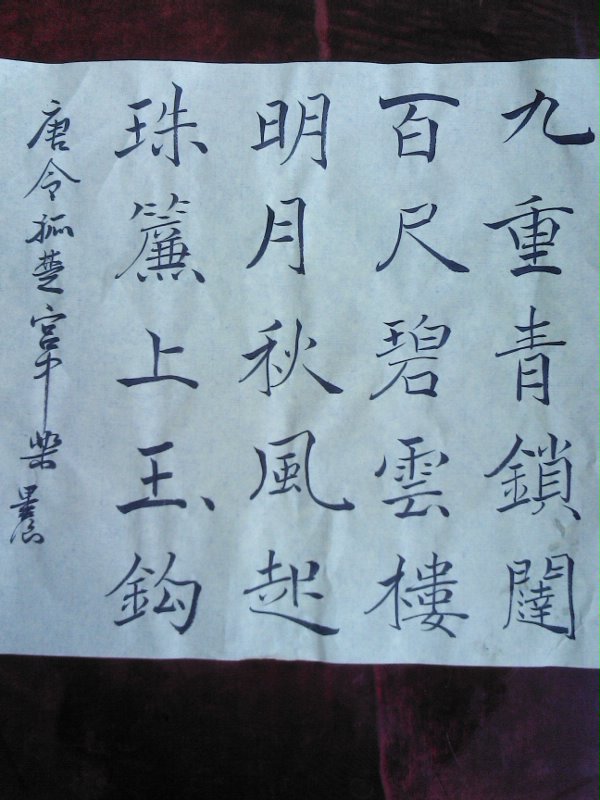 九重青鎖闥
百尺碧雲樓
明月秋風起
珠簾上玉鈎
唐令狐楚宮中樂